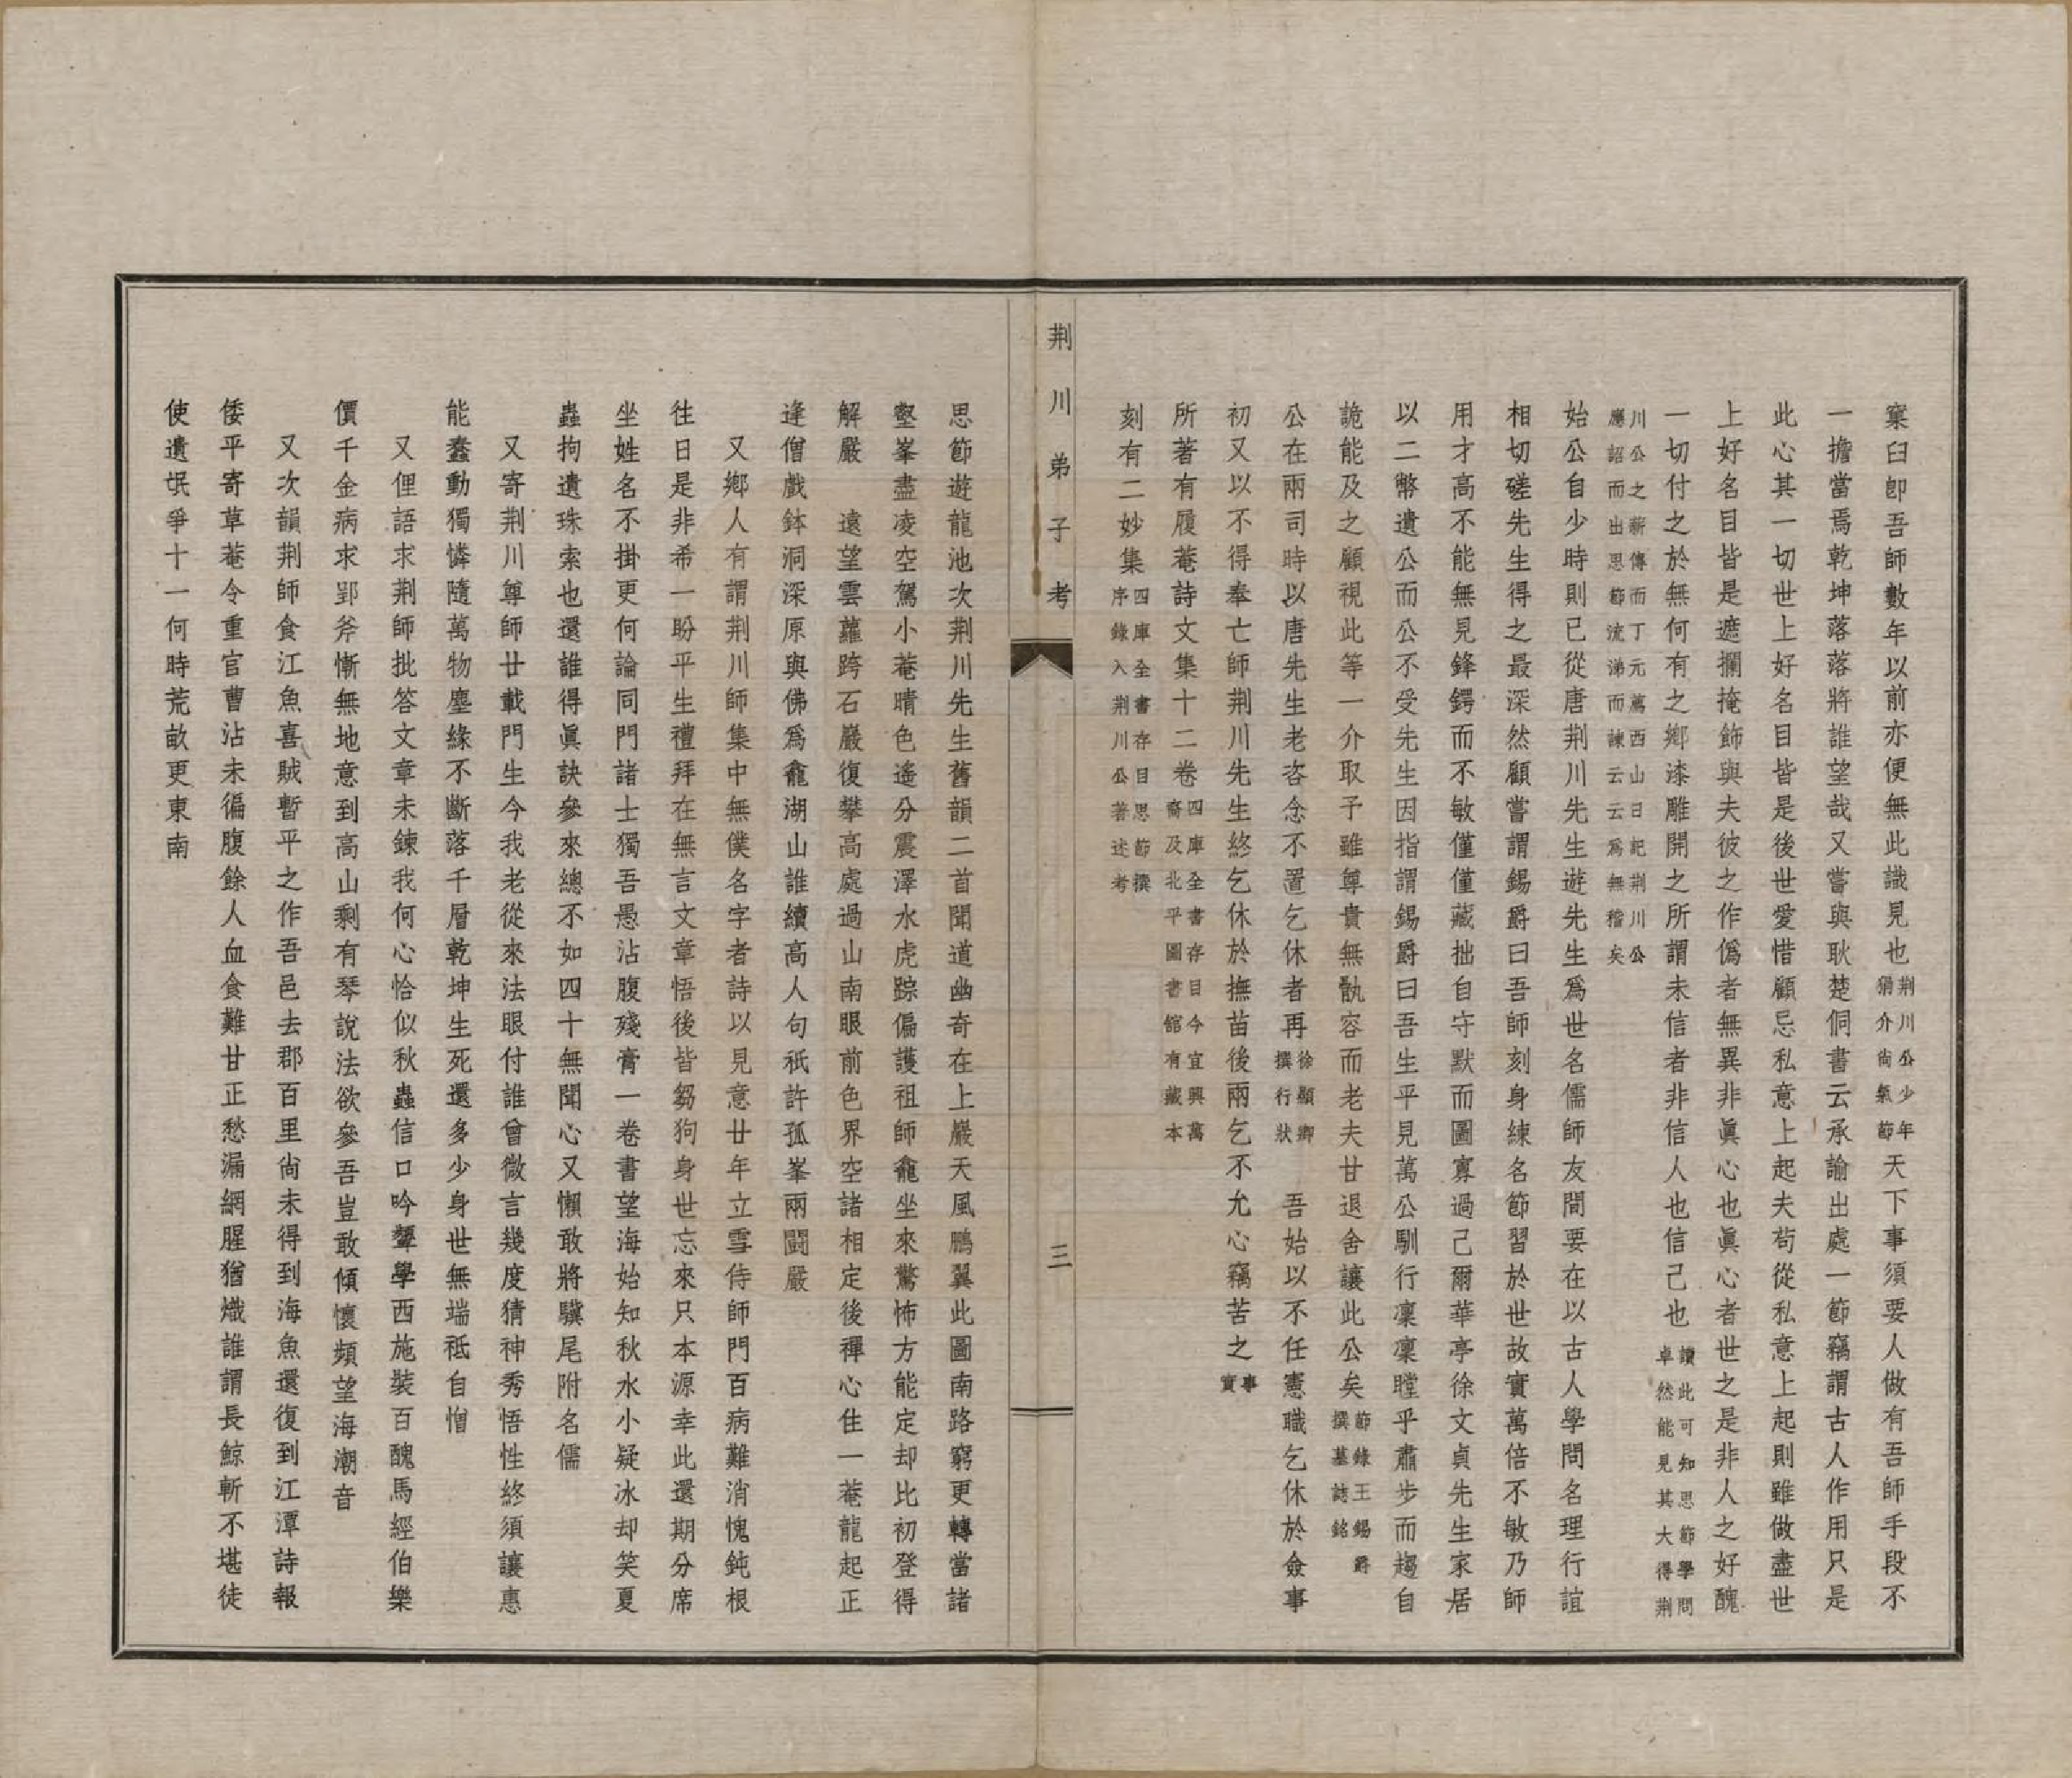 窠臼卽吾師數年以前亦便無此識見也荆川公少年猖介尙氣節天下事須要人做有吾師手段不
一擔當焉乾坤落落將誰望哉又嘗與耿楚侗書云承諭出處一節竊謂古人作用只是
此心其一切世上好名目皆是後世愛惜顧忌私意上起夫苟從私意上起則雖做盡世
上好名目皆是遮攔掩飾與夫彼之作僞者無異非眞心也眞心者世之是非人之好醜
一切付之於無何有之鄉漆雕開之所謂未信者非信人也信己也讀此可知思節學問卓然能見其大得荆
川公之薪傳而丁元薦西山日記荆川公應詔而出思節流涕而諫云云爲無稽矣
始公自少時則已從唐荆川先生遊先生爲世名儒師友間要在以古人學問名理行誼
相切磋先生得之最深然顧嘗謂錫爵曰吾師刻身練名節習於世故實萬倍不敏乃師
用才高不能無見鋒鍔而不敏僅僅藏拙自守默而圖寡過己爾華亭徐文貞先生家居
以二幣遺公而公不受先生因指謂錫爵曰吾生平見萬公馴行凜凜瞠乎肅步而趨自
詭能及之顧視此等一介取予雖尊貴無骩容而老夫甘退舍讓此公矣節錄王錫爵撰墓誌銘
公在兩司時以唐先生老咨念不置乞休者再徐顯卿撰行狀　吾始以不任憲職乞休於僉事
初又以不得奉亡師荆川先生終乞休於撫苗後兩乞不允心竊苦之事實
所著有履菴詩文集十二卷四庫全書存目今宜興萬裔及北平圖書館有藏本
刻有二妙集四庫全書存目思節撰序錄入荆川公著述考
荆川弟子考
三
思節遊龍池次荆川先生舊韻二首聞道幽奇在上巖天風鵬翼此圖南路窮更轉當諸
壑峯盡凌空駕小菴晴色遙分震澤水虎踪偏護祖師龕坐來驚怖方能定却比初登得
解嚴　遠望雲蘿跨石巖復攀高處過山南眼前色界空諸相定後禪心住一菴龍起正
逢僧戲鉢洞深原與佛爲龕湖山誰續高人句祇許孤峯兩鬪嚴
又鄉人有謂荆川師集中無僕名字者詩以見意廿年立雪侍師門百病難消愧鈍根
往日是非希一盼平生禮拜在無言文章悟後皆芻狗身世忘來只本源幸此還期分席
坐姓名不掛更何論同門諸士獨吾愚沾腹殘膏一卷書望海始知秋水小疑冰却笑夏
蟲拘遺珠索也還誰得眞訣參來總不如四十無聞心又懶敢將驥尾附名儒
又寄荆川尊師廿載門生今我老從來法眼付誰曾微言幾度猜神秀悟性終須讓惠
能蠢動獨憐隨萬物塵緣不斷落千層乾坤生死還多少身世無端祗自憎
又俚語求荆師批答文章未鍊我何心恰似秋蟲信口吟顰學西施裝百醜馬經伯樂
價千金病求郢斧慚無地意到高山剩有琴說法欲參吾豈敢傾懷頻望海潮音
又次韻荆師食江魚喜賊暫平之作吾邑去郡百里尙未得到海魚還復到江潭詩報
倭平寄草菴令重官曹沾未徧腹餘人血食難甘正愁漏網腥猶熾誰謂長鯨斬不堪徒
使遺氓爭十一何時荒畝更東南